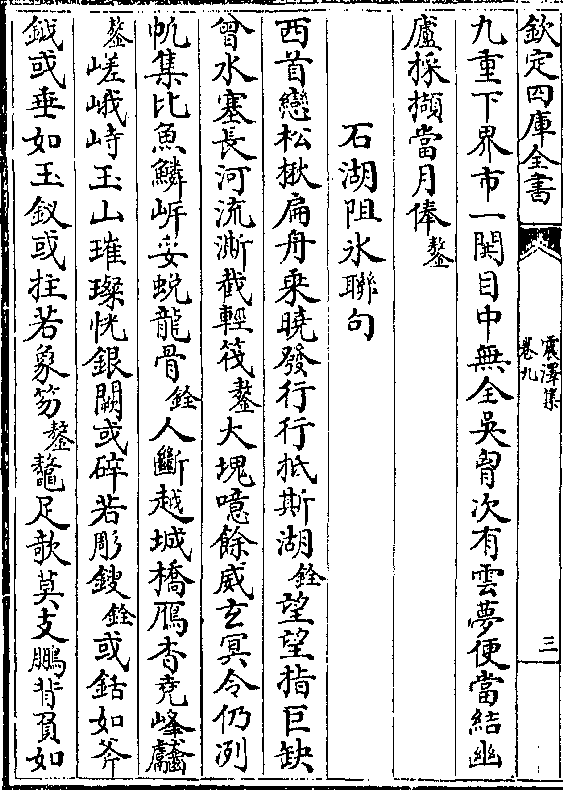 欽定四庫全書 震澤集 卷九 三
九重下界市一閧目中無全吳胷次有雲夢便當結幽
廬採擷當月俸鏊
石湖阻氷聯句
西首戀松楸扁舟乗曉發行行抵斯湖銓望望指巨缺
曾水塞長河流澌截輕筏鏊大塊噫餘威玄冥令仍冽
帆集比魚鱗妥蛻龍骨銓人斷越城橋鴈杳堯峰巘
鏊嵯峨峙玉山璀璨恍銀闕或碎若彫鎪銓或銛如斧
鉞或垂如玉釵或拄若象笏鏊鼇足欹莫支鵬背負如